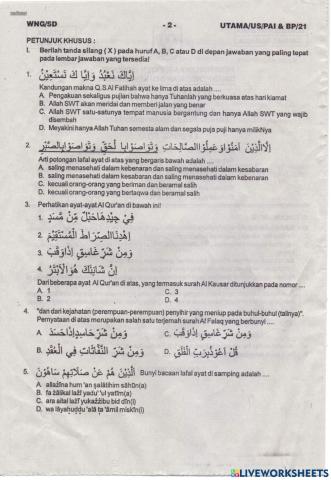 WNG/SD - 2 - UTAMA/US/PAI & BP/21
PETUNJUK KHUSUS :
I. Berilah tanda silang ( X ) pada huruf A, B, C atau D di depan jawaban yang paling tepat
pada lembar jawaban yang tersedia!
1. إِيَّاكَ نَعْبُدُ وَإِيَّا كَ نَسْتَعِيْنُ
Kandungan makna Q.S Al Fatihah ayat ke lima di atas adalah ....
A. Pengakuan sekaligus pujian bahwa hanya Tuhanlah yang berkuasa atas hari kiamat
B. Allah SWT akan meridai dan memberi jalan yang benar
C. Allah SWT satu-satunya tempat manusia bergantung dan hanya Allah SWT yang wajib
disembah
D. Meyakini hanya Allah Tuhan semesta alam dan segala puja puji hanya milikNya
2. اِلَّاالَّذِيْنَ اٰمَنُوْاوَعَمِلُواالصَّالِحَاتِ وَتَوَاصَوْابِا لْحَقِّ وَتَوَاصَوْابِالصَّبْرِ
Arti potongan lafal ayat di atas yang bergaris bawah adalah ....
A. saling menasehati dalam kebenaran dan saling menasehati dalam kesabaran
B. saling menasehati dalam kebenaran dan saling menasehati dalam kesabaran
C. kecuali orang-orang yang beriman dan beramal salih
D. kecuali orang-orang yang bertaqwa dan beramal salih
3. Perhatikan ayat-ayat Al Qur'an di bawah ini!
1. فِيْ جِيْدِهَاحَبْلٌ مِّنْ مَّسَدٍ
2. اِهْدِنَاالصِّرَاطَ الْمُسْتَقِيْمَ
3. وَمِنْ شَرِّغَاسِقٍ اِذَاوَقَبَ
4. اِنَّ شَانِئَكَ هُوَالْاَبْتَرُ
Dari beberapa ayat Al Qur'an di atas, yang termasuk surah Al Kausar ditunjukkan pada nomor ....
A. 1 C. 3
B. 2 D. 4
4. "dan dari kejahatan (perempuan-perempuan) penyihir yang meniup pada buhul-buhul (talinya)".
Pernyataan di atas merupakan salah satu terjemah surah Al Falaq yang berbunyi ....
A. وَمِنْ شَرِّ حَاسِدٍاِذَاحَسَدَ C. وَمِنْ شَرِّ غَاسِقٍ اِذَاوَقَبَ
B. وَمِنْ شَرِّ النَّفّٰثٰتِ فِي الْعُقَدِ D. قُلْ اَعُوْذُبِرَبِّ الْفَلَقِ
5. الَّذِيْنَ هُمْ عَنْ صَلَاتِهِمْ سَاهُوْنَ Bunyi bacaan lafal ayat di samping adalah ....
A. allażīna hum 'an ṣalātihim sāhūn(a)
B. fa żālikal lażī yadu' 'ul yatīm(a)
C. ara aital lażī yukażżibu bid dīn(i)
D. wa lāyaḥuḍḍu 'alā ṭa 'āmil miskīn(i)
LIVEWORKSHEETS